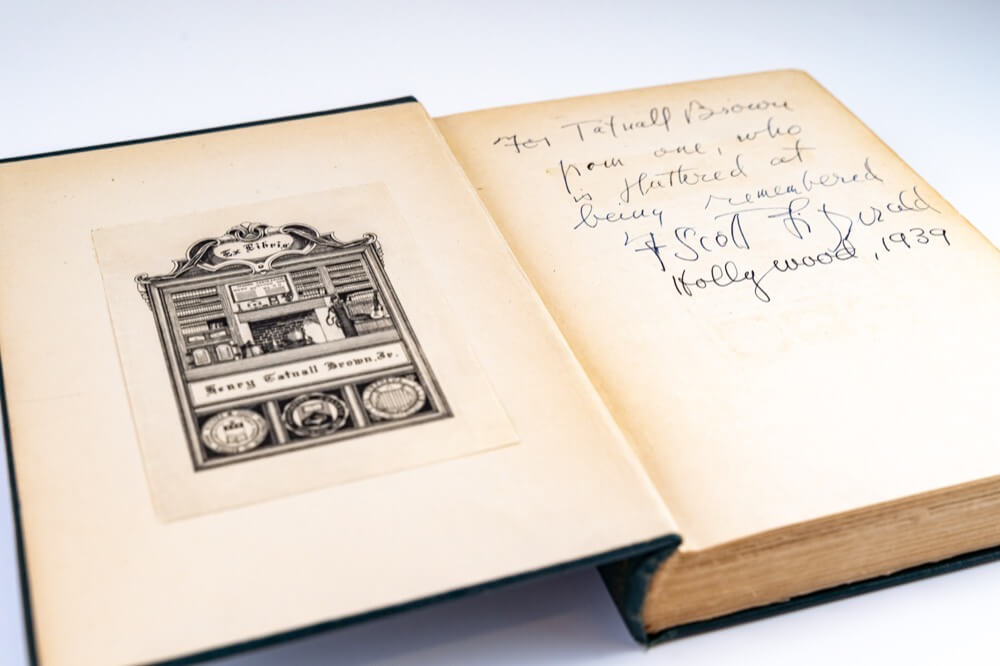 Ex Libris
Henry Tatnall Brown, Jr.
For Tatnall Brown
from one, who
is flattered at
being remembered
F Scott Fitzgerald
Hollywood, 1939